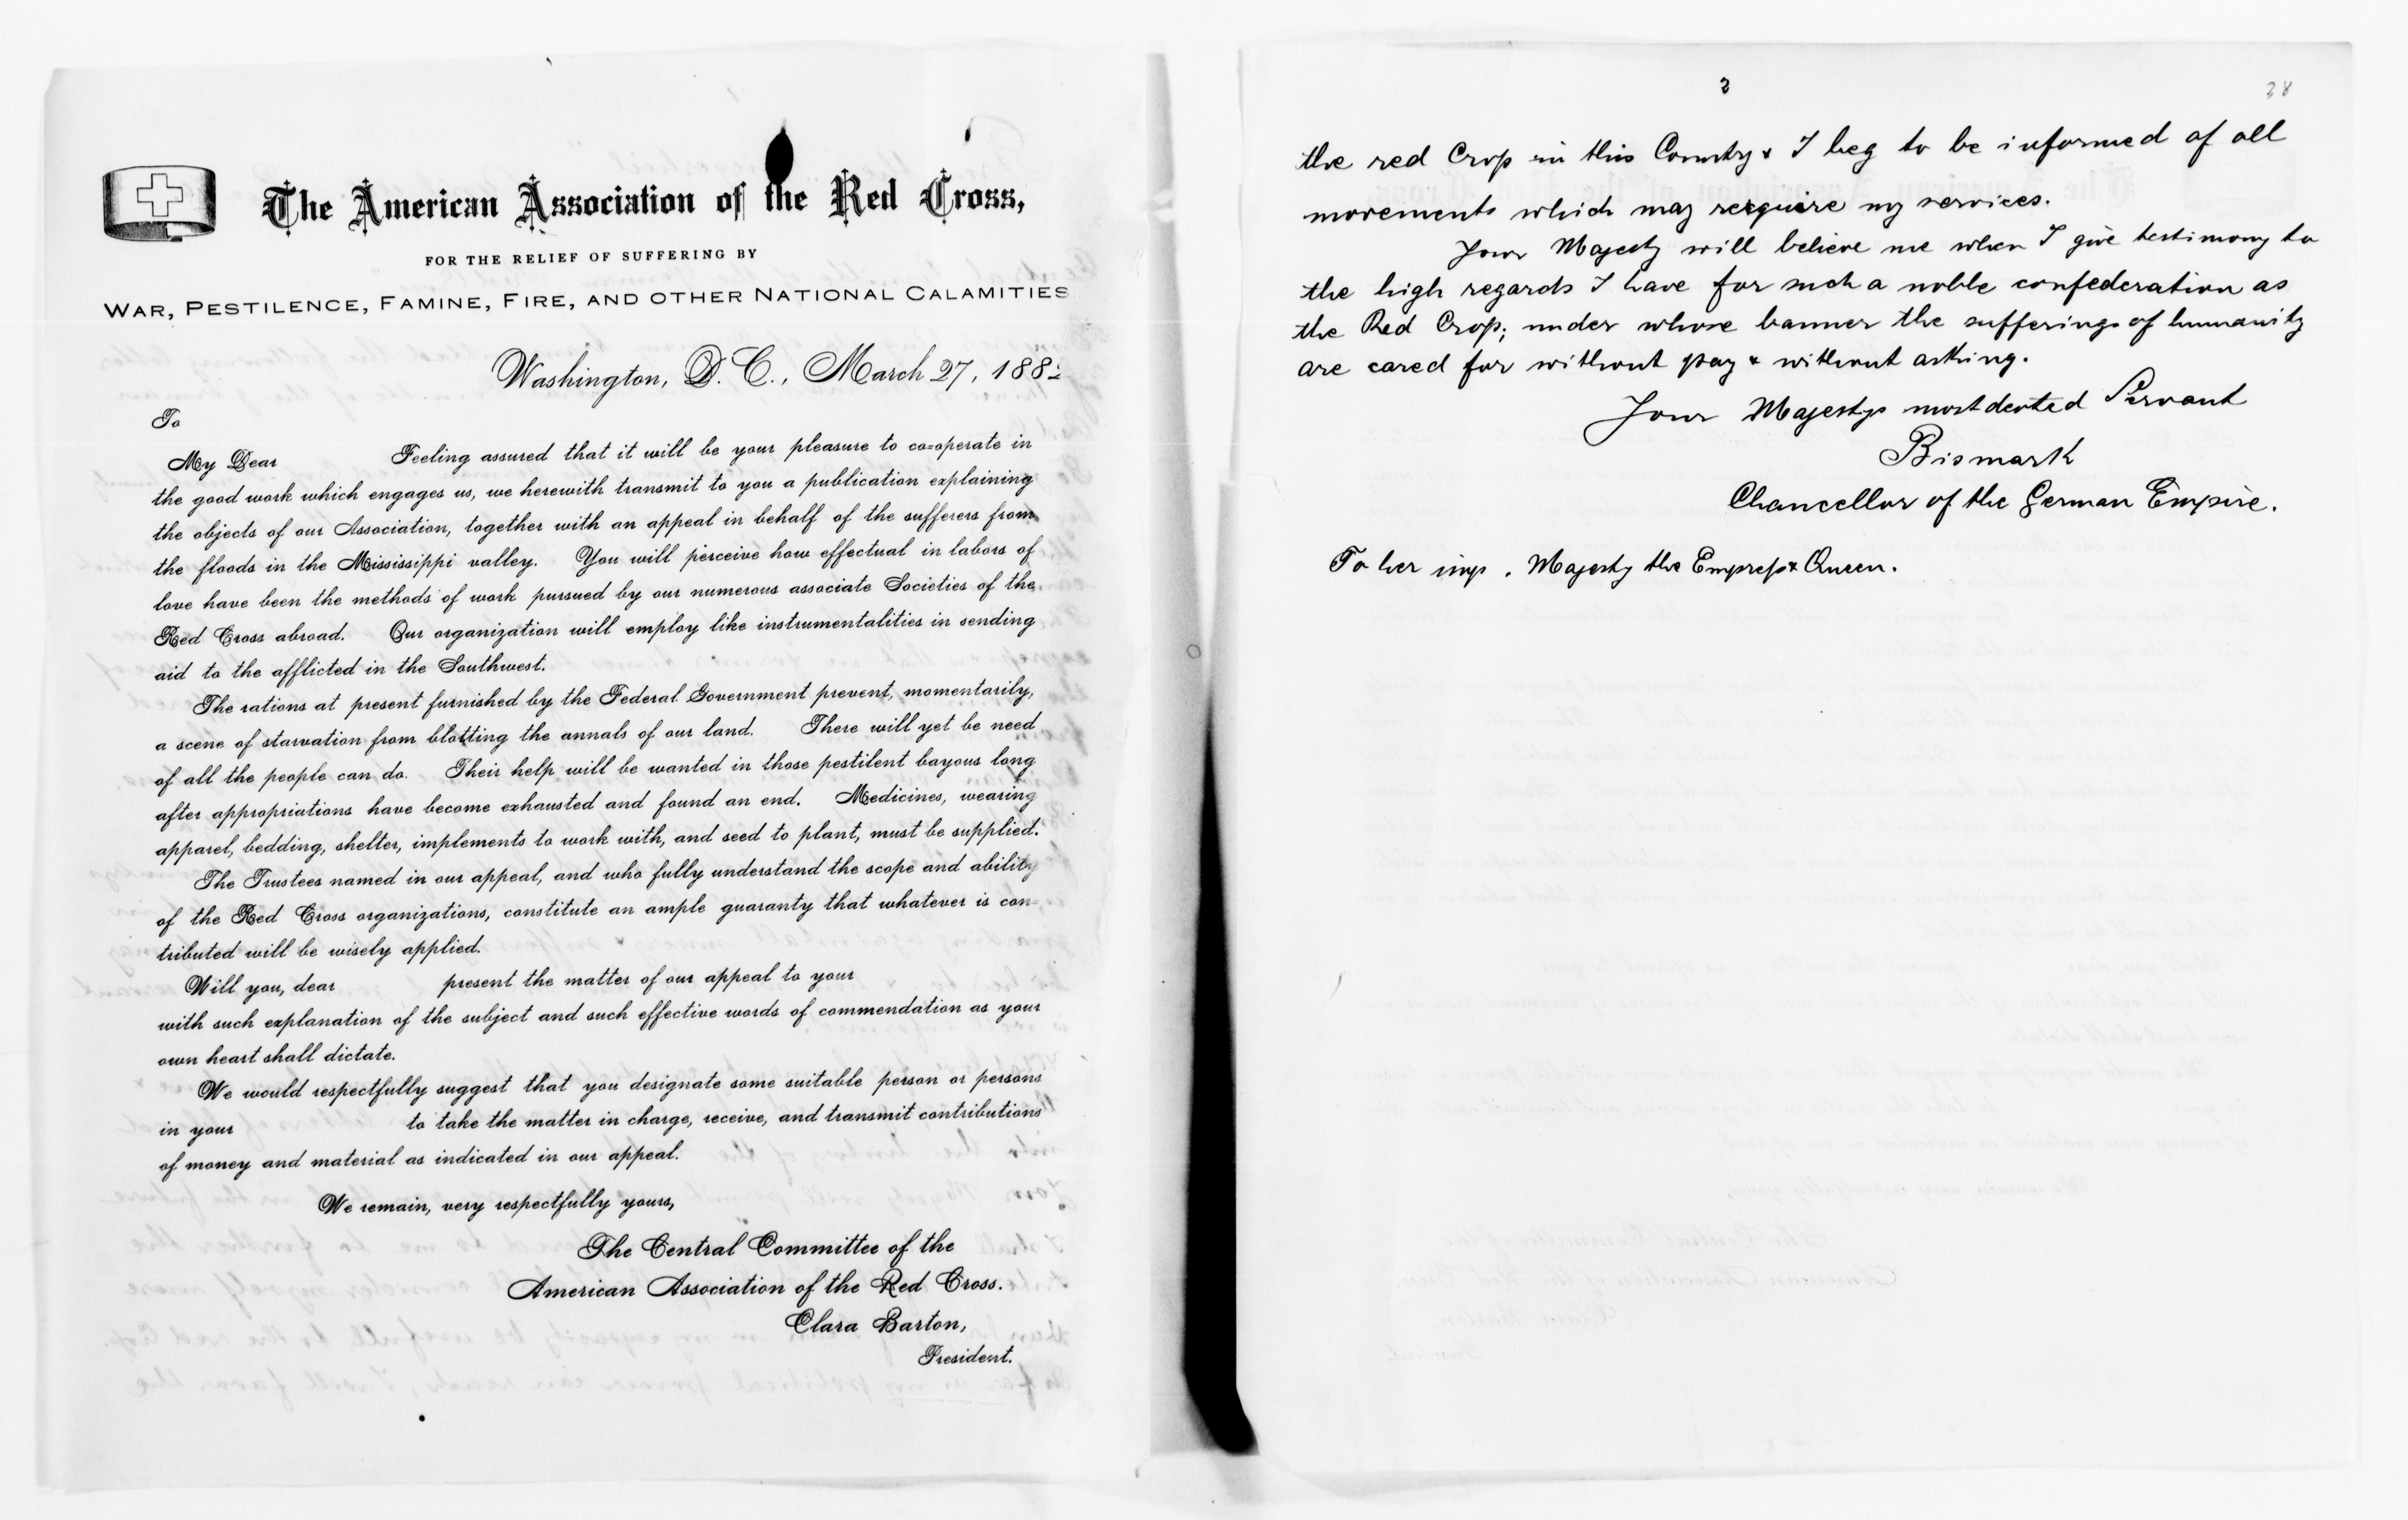 The American Association of the Red Cross,
FOR THE RELIEF OF SUFFERING BY
WAR, PESTILENCE, FAMINE, FIRE, AND OTHER NATIONAL CALAMITIES
Washington, D. C., March 27, 1882
To
My Dear Feeling assured that it will be your pleasure to co=operate in
the good work which engages us, we herewith transmit to you a publication explaining
the objects of our Association, together with an appeal in behalf of the sufferers from
the floods in the Mississippi valley. You will perceive how effectual in labors of
love have been the methods of work pursued by our numerous associate Societies of the
Red Cross abroad. Our organization will employ like instrumentalities in sending
aid to the afflicted in the Southwest.
The rations at present furnished by the Federal Government prevent, momentarily,
a scene of starvation from blotting the annals of our land. There will yet be need
of all the people can do. Their help will be wanted in those pestilent bayous long
after appropriations have become exhausted and found an end. Medicines, wearing
apparel, bedding, shelter, implements to work with, and seed to plant, must be supplied.
The Trustees named in our appeal, and who fully understand the scope and ability
of the Red Cross organizations, constitute an ample guaranty that whatever is con=
tributed will be wisely applied.
Will you, dear present the matter of our appeal to your
with such explanation of the subject and such effective words of commendation as your
own heart shall dictate.
We would respectfully suggest that you designate some suitable person or persons
in your to take the matter in charge, receive, and transmit contributions
of money and material as indicated in our appeal.
We remain, very respectfully yours,
The Central Committee of the
American Association of the Red Cross.
Clara Barton,
President.
3
38
the red Cross in this Country & I beg to be informed of all
movements which may resquire my services.
Your Majesty will believe me when I give testimony to
the high regards I have for such a noble confederation as
the Red Cross; under whose banner the sufferings of humanity
are cared for without pay & without asking.
Your Majestys most devoted Servant
Bismark
Chancellor of the German Empire.
To her imp. Majesty the Empress & Queen.